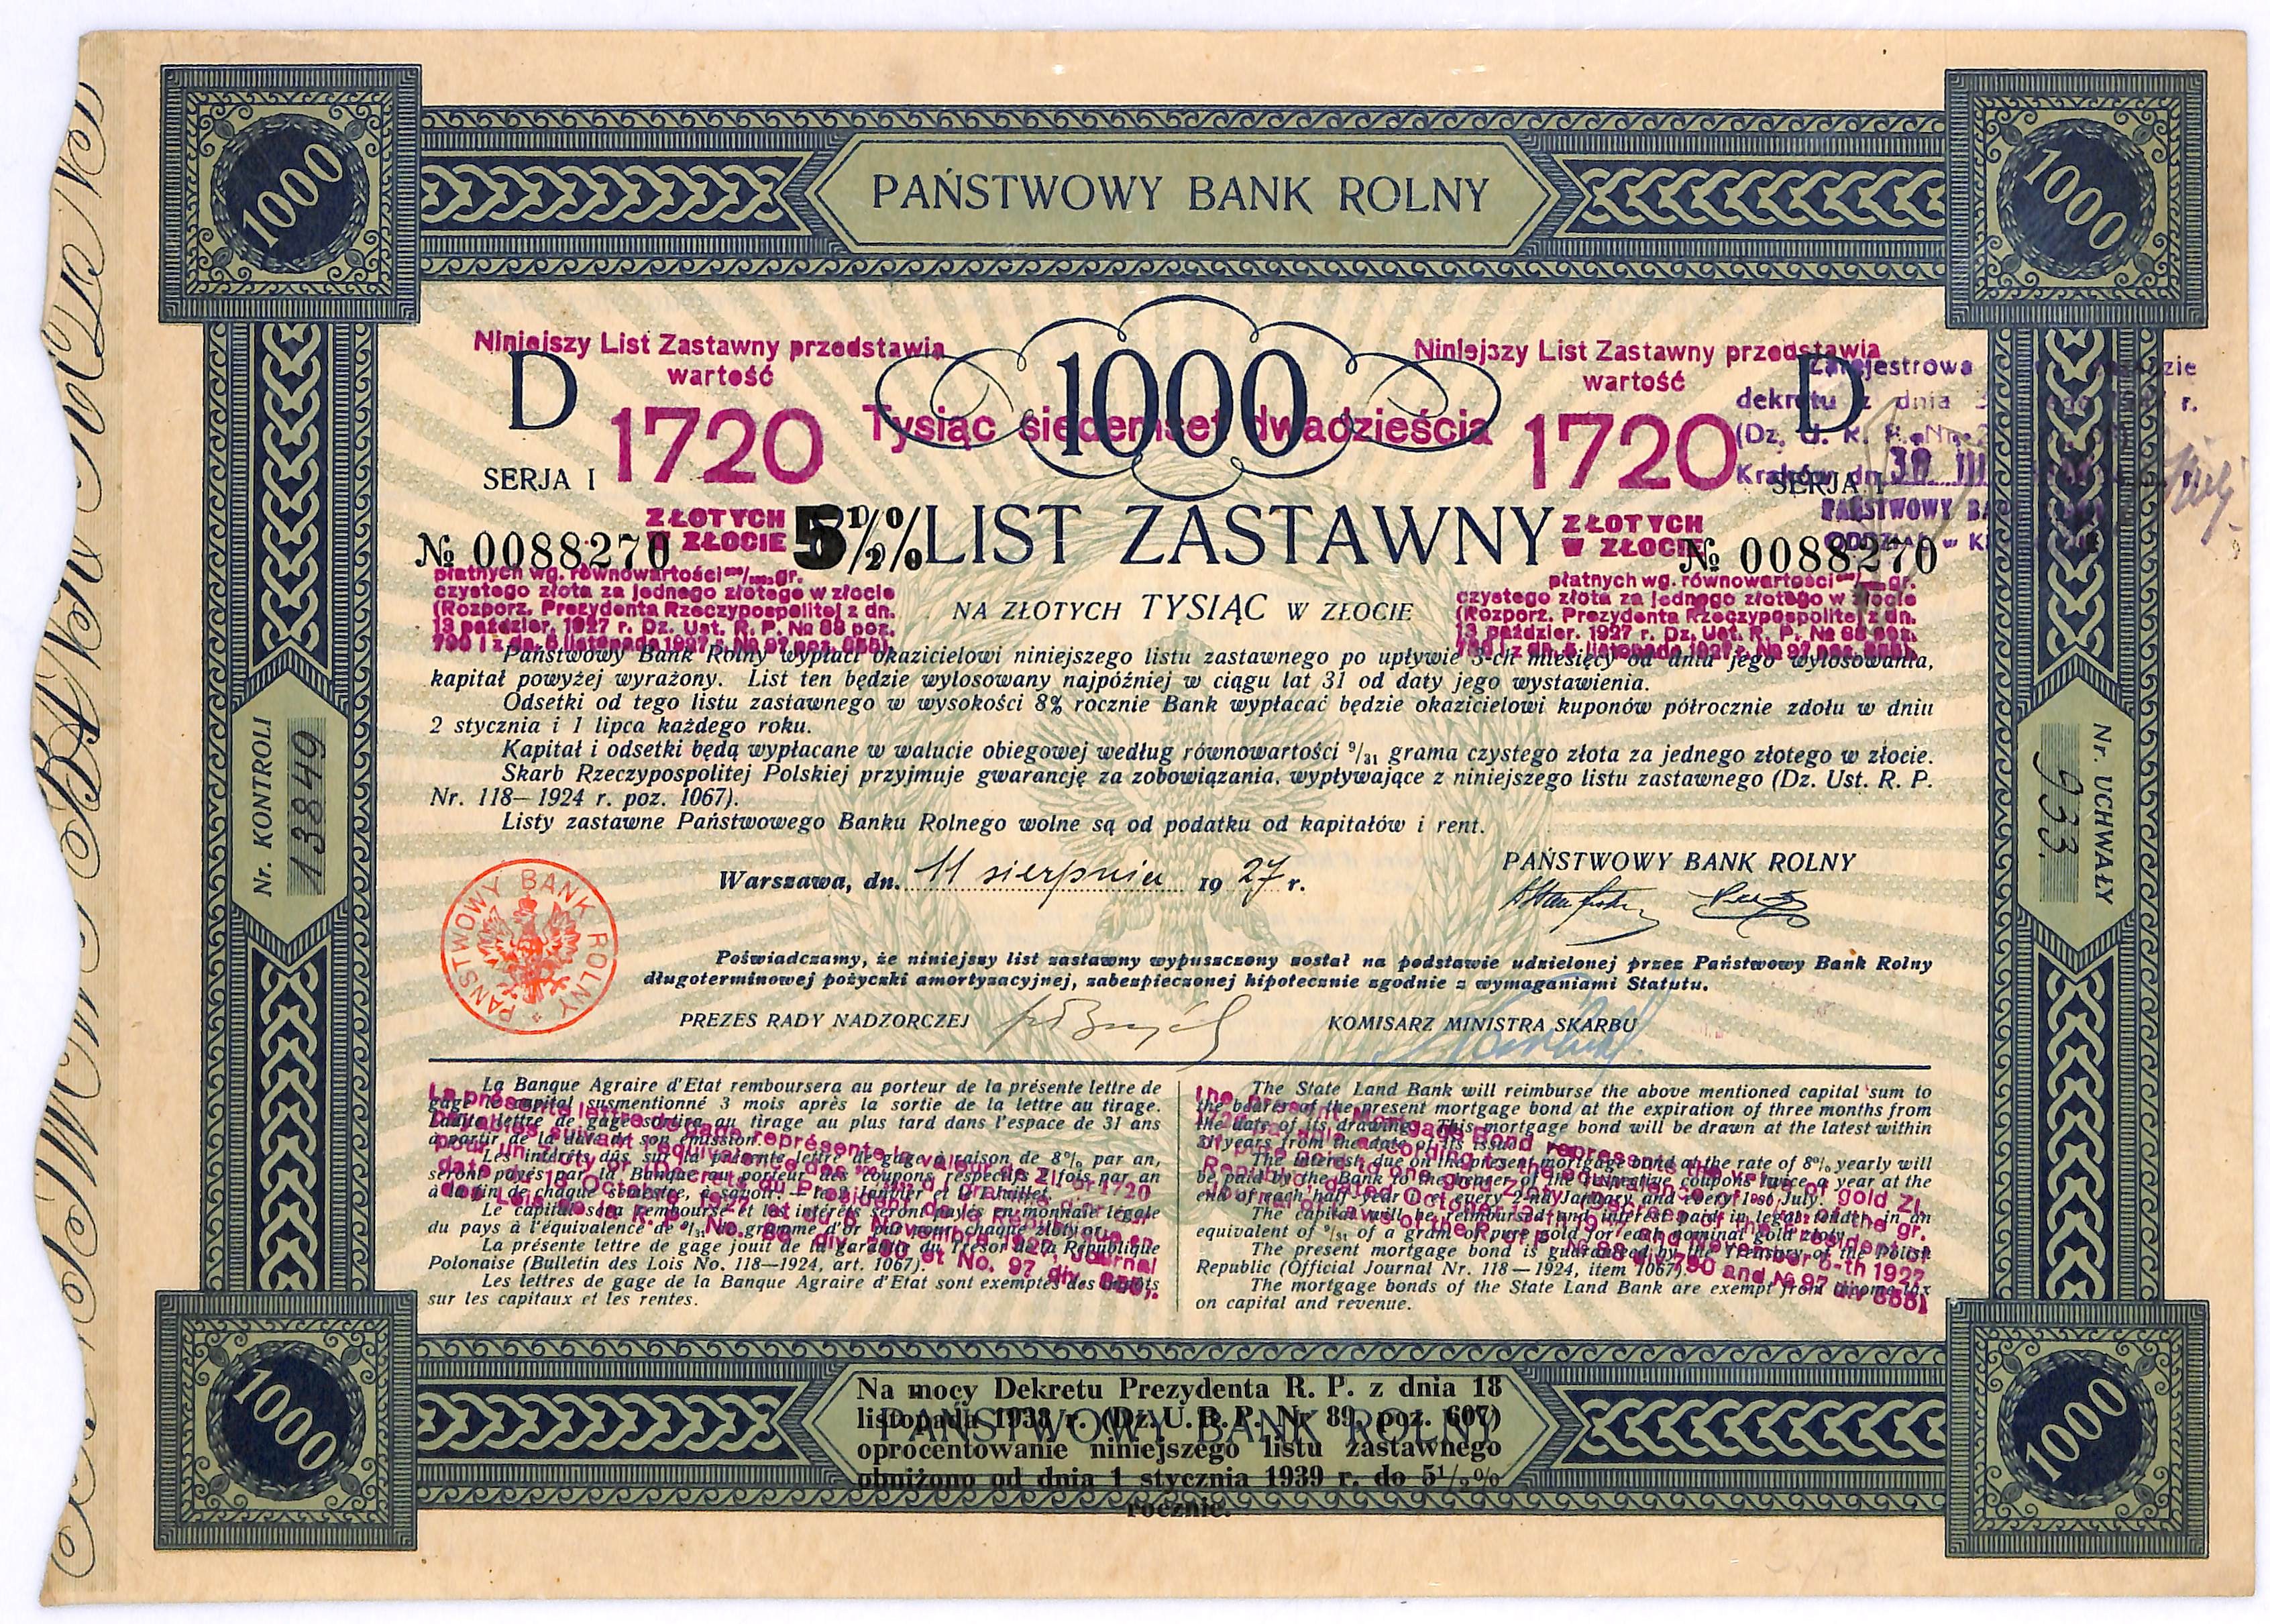 1000
PAŃSTWOWY BANK ROLNY
1000
Niniejszy List Zastawny przedstawia
wartość
1000
Niniejszy List Zastawny przedstawia
wartość
D
1720
Tysiąc siedemset dwadzieścia
1720
D
Zarejestrowa
dekretu z dnia
Kraków dn. 30 III
PAŃSTWOWY
SERJA I
SERJA I
ZŁOTYCH
W ZŁOCIE
5½% LIST ZASTAWNY
ZŁOTYCH
W ZŁOCIE
№ 0088270
№ 0088270
płatnych wg. równowartości gr.
czystego złota za jednego złotego w złocie
(Rozporz. Prezydenta Rzeczypospolitej z dn.
13 paździer. 1927 r. Dz. Ust. R. P. № 88 poz.
790 i z dn. 5 listopada 1927 r. № 97 poz. 855).
NA ZŁOTYCH TYSIĄC W ZŁOCIE
płatnych wg. równowartości gr.
czystego złota za jednego złotego w złocie
(Rozporz. Prezydenta Rzeczypospolitej z dn.
13 paździer. 1927 r. Dz. Ust. R. P. № 88 poz.
790 i z dn. 5 listopada 1927 r. № 97 poz. 855).
Państwowy Bank Rolny wypłaci okazicielowi niniejszego listu zastawnego po upływie 3-ch miesięcy od dnia jego wylosowania,
kapitał powyżej wyrażony. List ten będzie wylosowany najpóźniej w ciągu lat 31 od daty jego wystawienia.
Odsetki od tego listu zastawnego w wysokości 8% rocznie Bank wypłacać będzie okazicielowi kuponów półrocznie zdołu w dniu
2 stycznia i 1 lipca każdego roku.
Kapitał i odsetki będą wypłacane w walucie obiegowej według równowartości 9/31 grama czystego złota za jednego złotego w złocie.
Skarb Rzeczypospolitej Polskiej przyjmuje gwarancję za zobowiązania, wypływające z niniejszego listu zastawnego (Dz. Ust. R. P.
Nr. 118—1924 r. poz. 1067).
Listy zastawne Państwowego Banku Rolnego wolne są od podatku od kapitałów i rent.
Nr. KONTROLI 13849
Nr. UCHWAŁY 933.
Warszawa, dn. 11 sierpnia 1927 r.
PAŃSTWOWY BANK ROLNY
PAŃSTWOWY BANK ROLNY
Poświadczamy, że niniejszy list zastawny wypuszczony został na podstawie udzielonej przez Państwowy Bank Rolny
długoterminowej pożyczki amortyzacyjnej, zabezpieczonej hipotecznie zgodnie z wymaganiami Statutu.
PREZES RADY NADZORCZEJ
KOMISARZ MINISTRA SKARBU
La Banque Agraire d'Etat remboursera au porteur de la présente lettre de
gage le capital susmentionné 3 mois après la sortie de la lettre au tirage.
Ladite lettre de gage sortira au tirage au plus tard dans l'espace de 31 ans
à partir de la date de son émission.
Les intérêts dûs sur la présente lettre de gage à raison de 8% par an,
seront payés par la Banque au porteur des coupons respectifs 2 fois par an
à la fin de chaque semestre, à savoir:
Le capital sera remboursé et les intérêts seront payés en monnaie légale
du pays à l'équivalence de 9/31 de gramme d'or pur pour chaque zloty
La présente lettre de gage jouit de la garantie du Trésor de la République
Polonaise (Bulletin des Lois No. 118—1924, art. 1067).
Les lettres de gage de la Banque Agraire d'Etat sont exemptes des impôts
sur les capitaux et les rentes.
The State Land Bank will reimburse the above mentioned capital sum to
the bearer of the present mortgage bond at the expiration of three months from
the date of its drawing. This mortgage bond will be drawn at the latest within
31 years from the date of its issue.
The interest due on the present mortgage bond at the rate of 8% yearly will
be paid by the Bank to the bearer of the respective coupons twice a year at the
end of each half year i. e. every 2-nd January and every 1-st July.
The capital will be reimbursed and interest paid in legal tender in an
equivalent of 9/31 of a gram of pure gold for each nominal gold zloty.
The present mortgage bond is guaranteed by the Treasury of the Polish
Republic (Official Journal Nr. 118—1924, item 1067).
The mortgage bonds of the State Land Bank are exempt from income-tax
on capital and revenue.
1000
PAŃSTWOWY BANK ROLNY
Na mocy Dekretu Prezydenta R. P. z dnia 18
listopada 1938 r. (Dz. U. R. P. Nr 89, poz. 607)
oprocentowanie niniejszego listu zastawnego
obniżono od dnia 1 stycznia 1939 r. do 5½%
rocznie.
1000